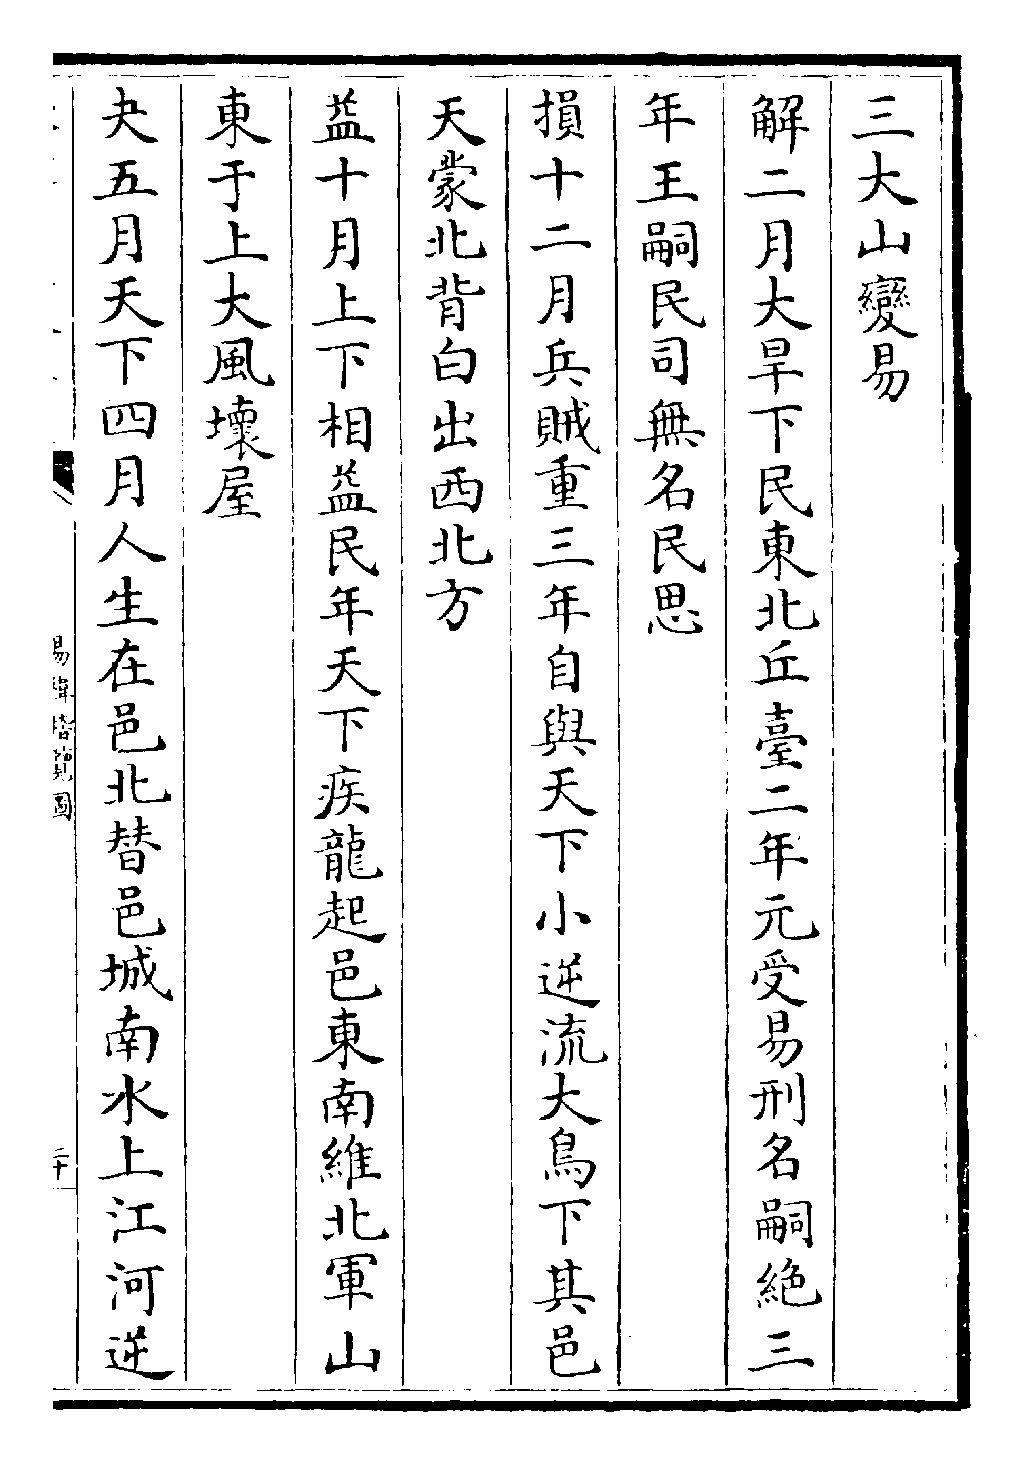 三大山變易
解二月大旱下民東北丘臺二年元受易刑名嗣絶三
年王嗣民司無名民思
損十二月兵賊重三年自與天下小逆流大鳥下其邑
天蒙北背白出西北方
益十月上下相益民年天下疾龍起邑東南維北軍山
東于上大風壞屋
夬五月天下四月人生在邑北替邑城南水上江河逆
易緯稽覽圖
二十